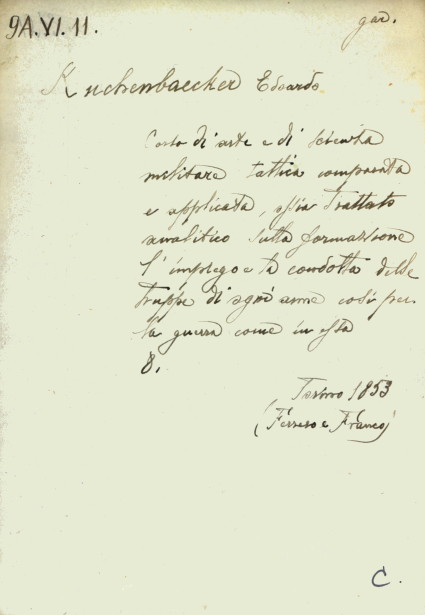 9A.VI.11.
gar.
Kuchenbaecker Edoardo
Corso di arte e di scienza
militare tattica comparata
e applicata, ossia Trattato
analitico sulla formazione
l'impiego e la condotta delle
truppe di ogni arme così per
la guerra come in essa
8.
Torino 1853
(Ferrero e Franco)
C.